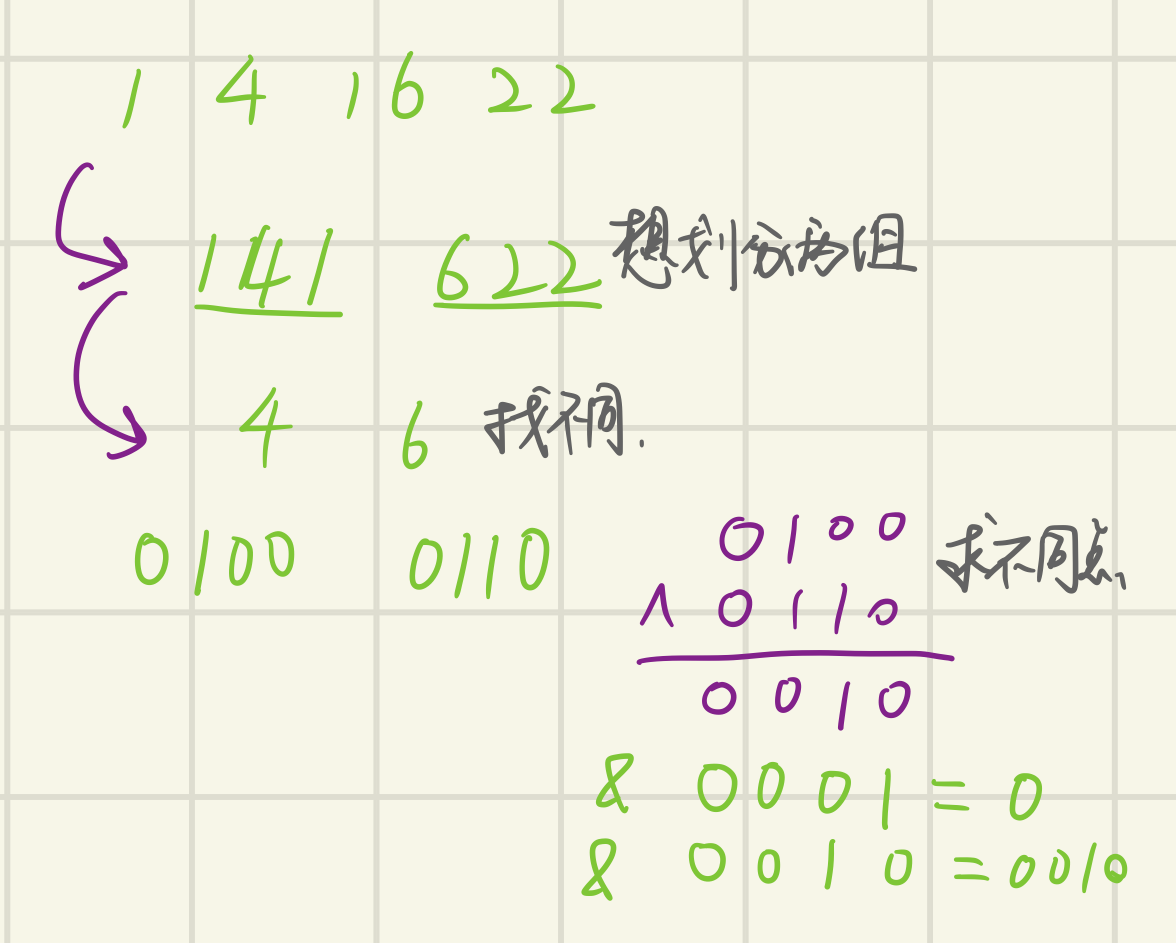 1 4 1 6 2 2
1 4 1 6 2 2 想划分两组
4 6 找不同.
0100 0110
0100 求不同点
^ 0110
0010
& 0001 = 0
& 0010 = 0010